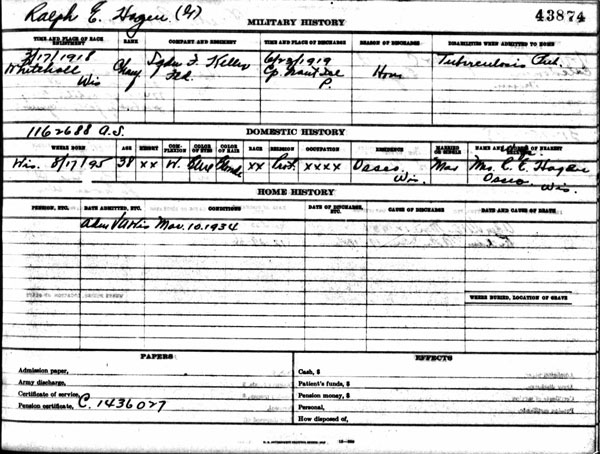 Ralph E. Hagen (W)
MILITARY HISTORY
43874
TIME AND PLACE OF EACH ENLISTMENT
RANK
COMPANY AND REGIMENT
TIME AND PLACE OF DISCHARGE
REASON OF DISCHARGE
DISABILITIES WHEN ADMITTED TO HOME
3/17/1918
Whitehall
Wis
6/23/1919
Cp. Grant Ill
Tuberculosis Pul.
1162688 A.S.
DOMESTIC HISTORY
WHERE BORN
AGE
HEIGHT
COMPLEXION
COLOR OF EYES
COLOR OF HAIR
RACE
RELIGION
OCCUPATION
RESIDENCE
MARRIED OR SINGLE
NAME AND OF NEAREST
Wis. 8/17/95 38 xx W. Blue Blonde xx Prot. xxxx Osseo, Wis. Mar Mrs. C. E. Hagen
Osseo, Wis.
HOME HISTORY
PENSION, ETC.
DATE ADMITTED, ETC.
CONDITIONS
DATE OF DISCHARGE, ETC.
CAUSE OF DISCHARGE
DATE AND CAUSE OF DEATH
Mar. 10. 1934
WHERE BURIED, LOCATION OF GRAVE
PAPERS
EFFECTS
Admission paper,
Army discharge,
Certificate of service,
Pension certificate, C. 1436027
Cash, $
Patient's funds, $
Pension money, $
Personal,
How disposed of,